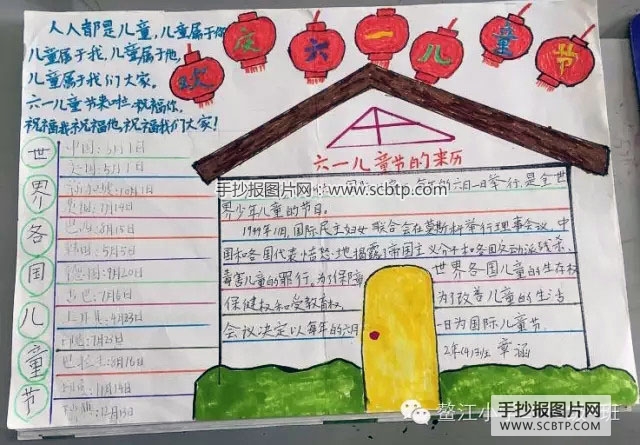 人人都是儿童，儿童属于你
儿童属于我，儿童属于他，
儿童属于我们大家。
六一儿童节来啦，祝福你，
祝福我祝福他，祝福我们大家！
欢庆六一儿童节
世界各国儿童节
中国：6月1日
6月1日
7月14日
8月15日
韩国：5月5日
德国：9月20日
古巴：7月6日
土耳其：4月23日
7月23日
巴拉圭：8月16日
11月14日
12月13日
六一儿童节的来历
六月一日举行，是全世
界少年儿童的节日。
1949年11月，国际民主妇女联合会在莫斯科举行理事会议，中
国和各国代表愤怒地揭露了帝国主义分子和各国反动派残杀、
毒害儿童的罪行。为了保障世界各国儿童的生存权
保健权和受教育权，为了改善儿童的生活
会议决定以每年的六月一日为国际儿童节。
章涵
手抄报图片网
www.scbtp.com
鳌江小
班
手抄报图片网
WWW.SCBTP.COM